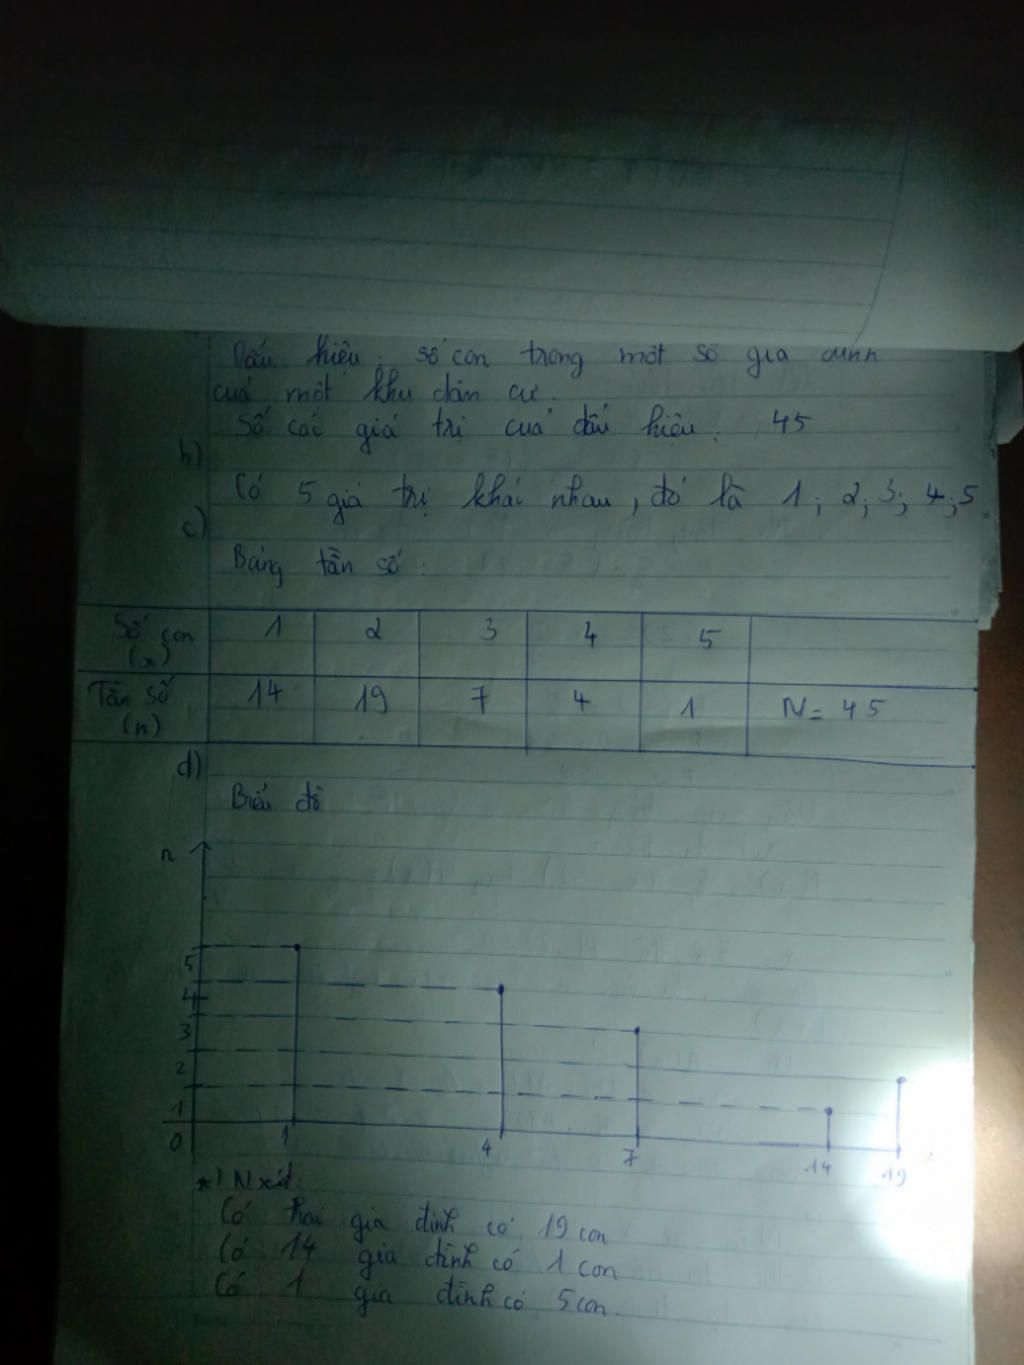 Dấu hiệu: số con trong một số gia đình
của một khu dân cư.
Số các giá trị của dấu hiệu: 45
b)
Có 5 giá trị khác nhau, đó là 1; 2; 3; 4; 5
c)
Bảng tần số:
Số con (x) 1 2 3 4 5
Tần số (n) 14 19 7 4 1 N = 45
d)
Biểu đồ
n
5
4
3
2
1
0 1 4 7 14 19
*) N xét:
Có hai gia đình có 19 con
Có 14 gia đình có 1 con
Có 1 gia đình có 5 con